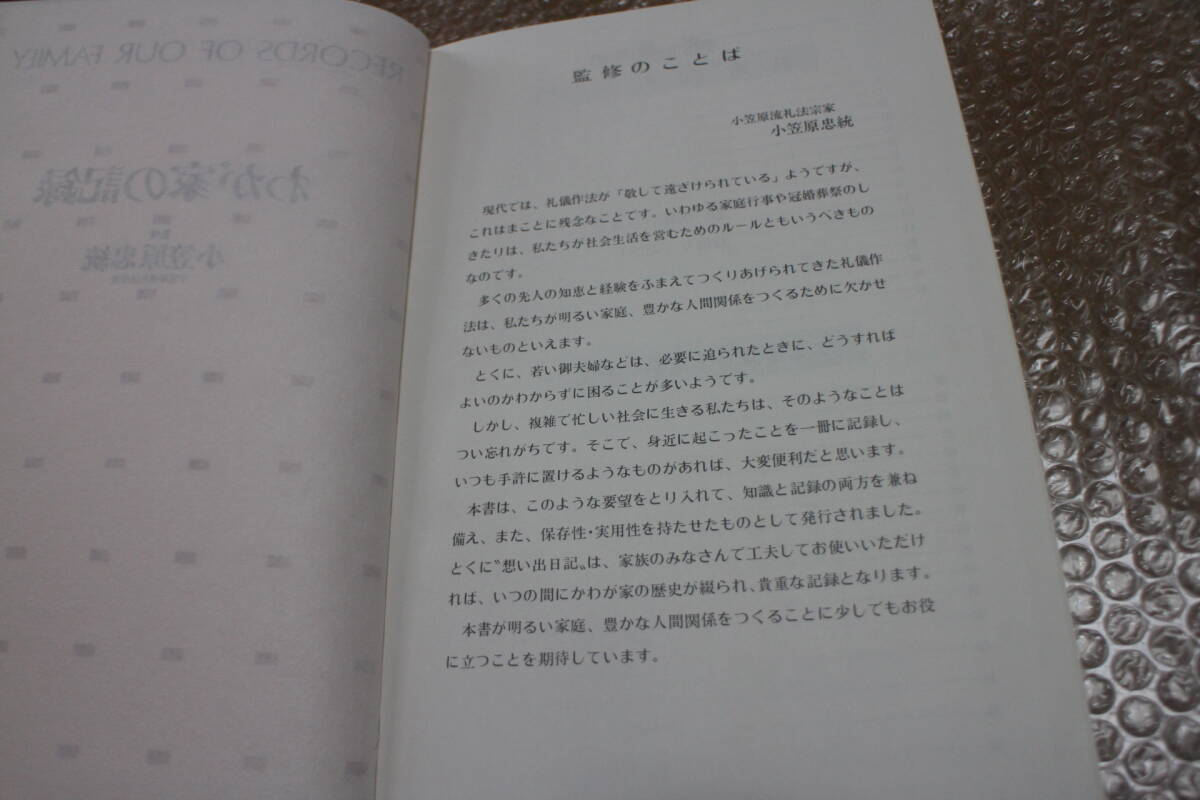 RECORDS OF OUR FAMILY
わが家の記録
小笠原忠統
監修のことば
小笠原流礼法宗家
小笠原忠統
現代では、礼儀作法が「敬して遠ざけられている」ようですが、
これはまことに残念なことです。いわゆる家庭行事や冠婚葬祭のし
きたりは、私たちが社会生活を営むためのルールともいうべきもの
なのです。
多くの先人の知恵と経験をふまえてつくりあげられてきた礼儀作
法は、私たちが明るい家庭、豊かな人間関係をつくるために欠かせ
ないものといえます。
とくに、若い御夫婦などは、必要に迫られたときに、どうすれば
よいのかわからずに困ることが多いようです。
しかし、複雑で忙しい社会に生きる私たちは、そのようなことは
つい忘れがちです。そこで、身近に起こったことを一冊に記録し、
いつも手許に置けるようなものがあれば、大変便利だと思います。
本書は、このような要望をとり入れて、知識と記録の両方を兼ね
備え、また、保存性・実用性を持たせたものとして発行されました。
とくに〝想い出日記〟は、家族のみなさんで工夫してお使いいただけ
れば、いつの間にかわが家の歴史が綴られ、貴重な記録となります。
本書が明るい家庭、豊かな人間関係をつくることに少しでもお役
に立つことを期待しています。